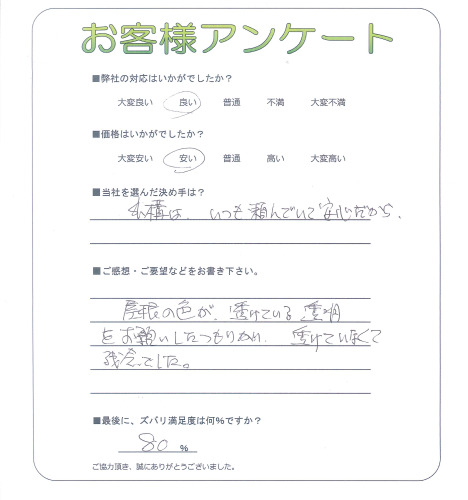 お客様アンケート
■弊社の対応はいかがでしたか？
大変良い 良い 普通 不満 大変不満
■価格はいかがでしたか？
大変安い 安い 普通 高い 大変高い
■当社を選んだ決め手は？
外構は、いつも頼んでいて安心だから、
■ご感想・ご要望などをお書き下さい。
屋根の色が、透けている透明
をお願いしたつもりが、透けていなくて
残念でした。
■最後に、ズバリ満足度は何%ですか？
80 %
ご協力頂き、誠にありがとうございました。